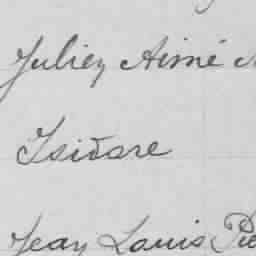 Julien Aimé
Isidore
Jean Louis